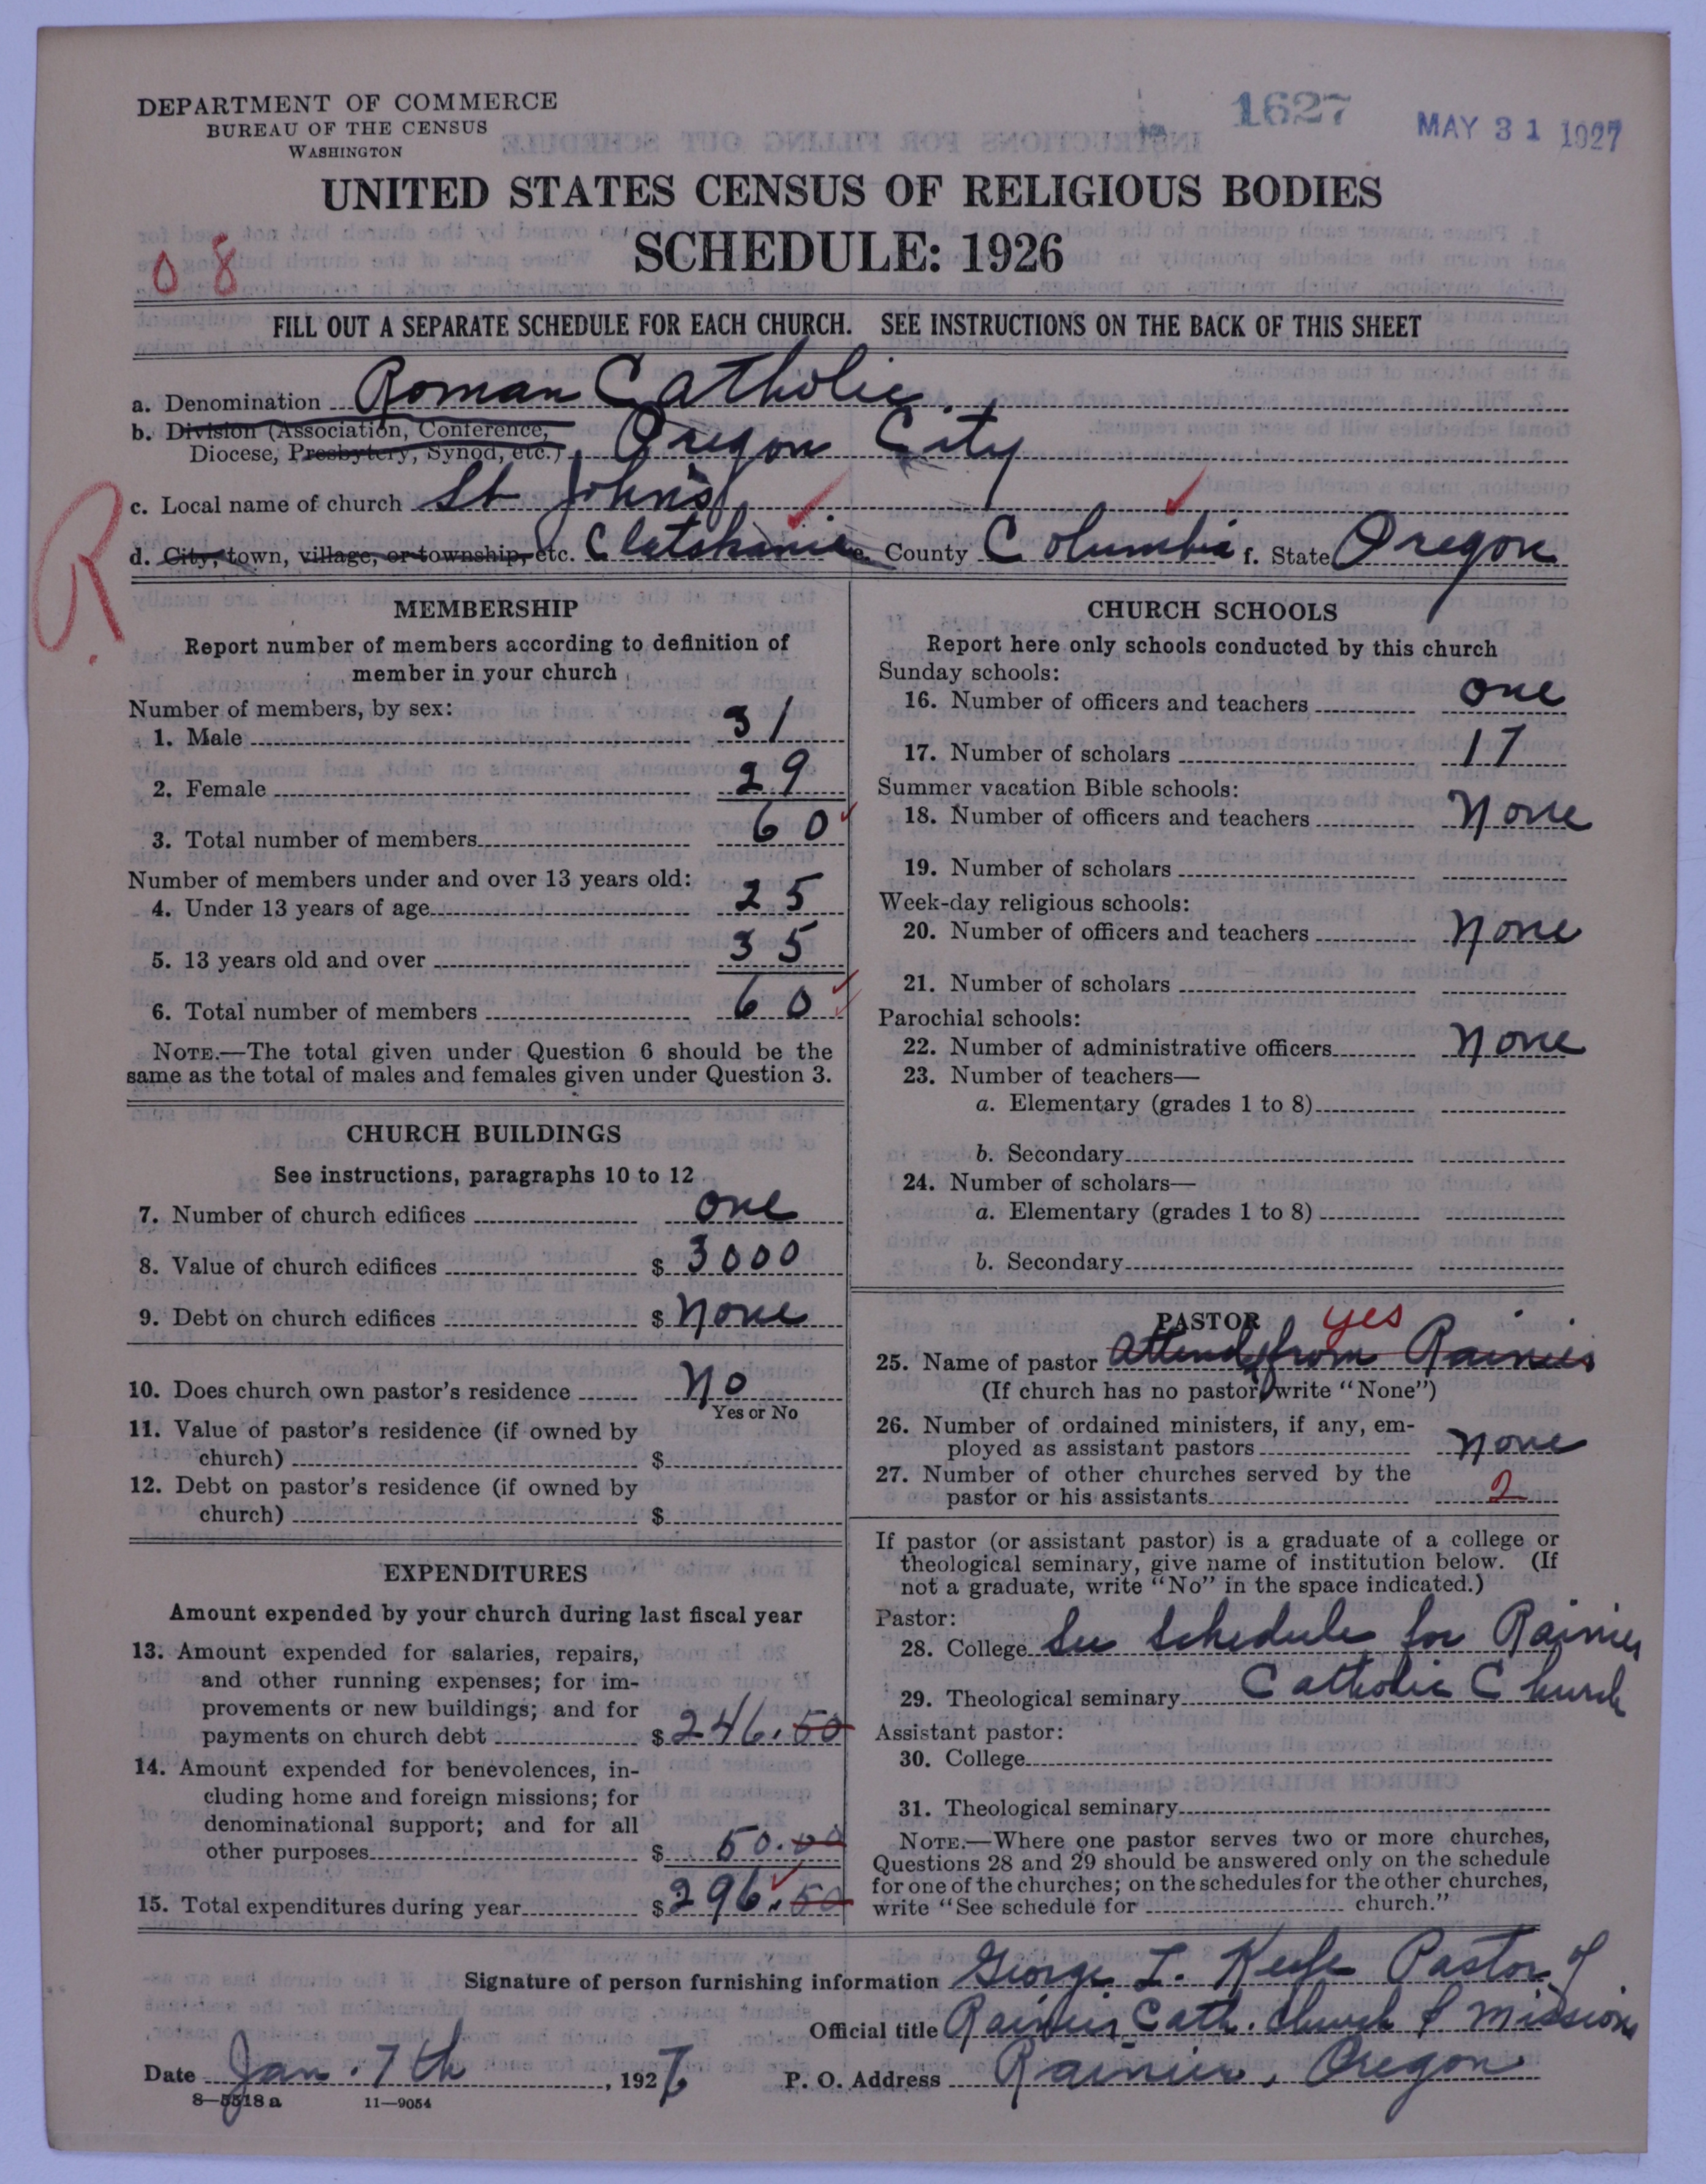 DEPARTMENT OF COMMERCE
BUREAU OF THE CENSUS
WASHINGTON
1627
MAY 31 1927
UNITED STATES CENSUS OF RELIGIOUS BODIES
SCHEDULE: 1926
08
FILL OUT A SEPARATE SCHEDULE FOR EACH CHURCH. SEE INSTRUCTIONS ON THE BACK OF THIS SHEET
a. Denomination Roman Catholic
b. Division (Association, Conference,
Diocese, Presbytery, Synod, etc.) Oregon City
c. Local name of church St John's
R.
d. City, town, village, or township, etc. Clatskanie e. County Columbia f. State Oregon
MEMBERSHIP
Report number of members according to definition of
member in your church
Number of members, by sex:
1. Male 31
2. Female 29
3. Total number of members 60
Number of members under and over 13 years old:
4. Under 13 years of age 25
5. 13 years old and over 35
6. Total number of members 60
NOTE.—The total given under Question 6 should be the
same as the total of males and females given under Question 3.
CHURCH BUILDINGS
See instructions, paragraphs 10 to 12
7. Number of church edifices one
8. Value of church edifices $ 3000
9. Debt on church edifices $ None
10. Does church own pastor's residence No
Yes or No
11. Value of pastor's residence (if owned by
church) $
12. Debt on pastor's residence (if owned by
church) $
EXPENDITURES
Amount expended by your church during last fiscal year
13. Amount expended for salaries, repairs,
and other running expenses; for im-
provements or new buildings; and for
payments on church debt $ 246.50
14. Amount expended for benevolences, in-
cluding home and foreign missions; for
denominational support; and for all
other purposes $ 50.00
15. Total expenditures during year $ 296.50
CHURCH SCHOOLS
Report here only schools conducted by this church
Sunday schools:
16. Number of officers and teachers one
17. Number of scholars 17
Summer vacation Bible schools:
18. Number of officers and teachers None
19. Number of scholars
Week-day religious schools:
20. Number of officers and teachers None
21. Number of scholars
Parochial schools:
22. Number of administrative officers None
23. Number of teachers—
a. Elementary (grades 1 to 8)
b. Secondary
24. Number of scholars—
a. Elementary (grades 1 to 8)
b. Secondary
PASTOR yes
25. Name of pastor attended from Rainier
(If church has no pastor, write "None")
26. Number of ordained ministers, if any, em-
ployed as assistant pastors None
27. Number of other churches served by the
pastor or his assistants 2
If pastor (or assistant pastor) is a graduate of a college or
theological seminary, give name of institution below. (If
not a graduate, write "No" in the space indicated.)
Pastor:
28. College See schedule for Rainier
29. Theological seminary Catholic Church
Assistant pastor:
30. College
31. Theological seminary
NOTE.—Where one pastor serves two or more churches,
Questions 28 and 29 should be answered only on the schedule
for one of the churches; on the schedules for the other churches,
write "See schedule for church."
Signature of person furnishing information George I. Keefe Pastor of
Official title Rainier Cath. Church & Missions
Date Jan. 7th, 1927 P. O. Address Rainier, Oregon
8—5518a 11—9054